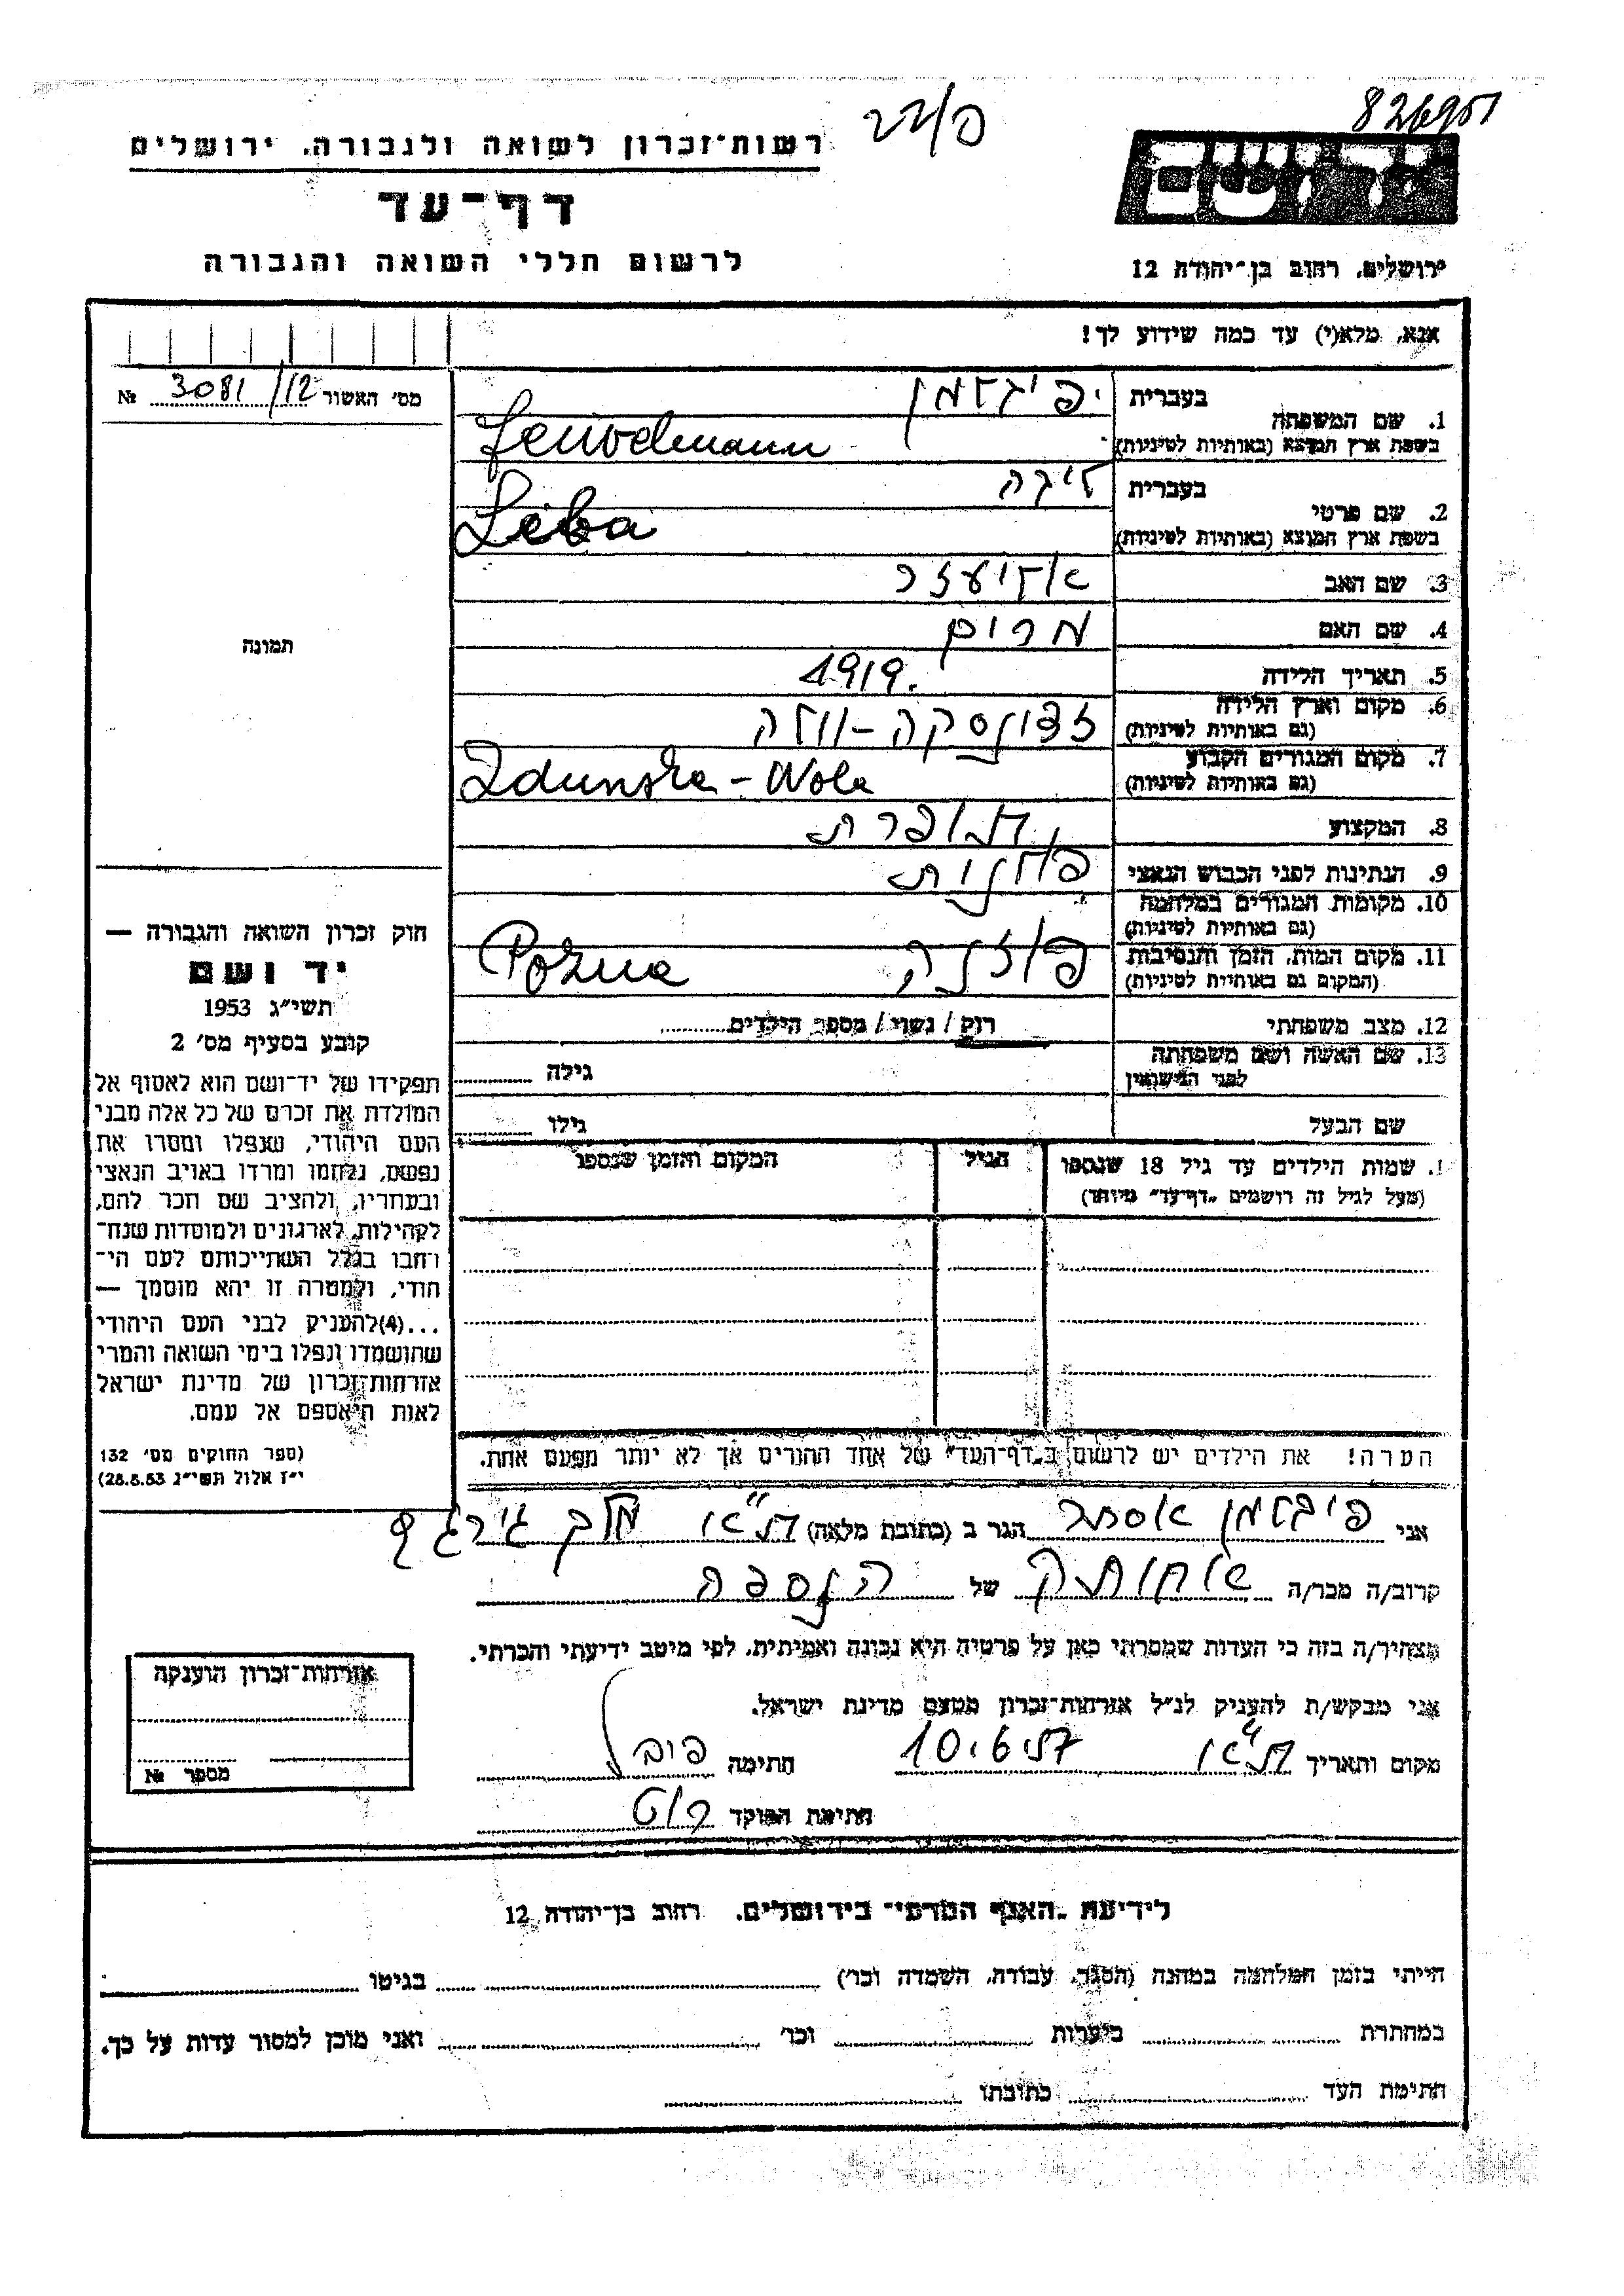 826951
פ/22
יד ושם
רשות־זכרון לשואה ולגבורה, ירושלים
דף־עד
לרשום חללי השואה והגבורה
ירושלים, רחוב בן־יהודה 12
אנא, מלא(י) עד כמה שידוע לך!
מס' האשור 3081/12 №
תמונה
1. שם המשפחה
בעברית
בשפת ארץ המוצא (באותיות לטיניות)
2. שם פרטי
בעברית ליבה
בשפת ארץ המוצא (באותיות לטיניות) Leiba
3. שם האב אליעזר
4. שם האם מרים
5. תאריך הלידה 1919.
6. מקום וארץ הלידה זדונסקה-וולה
(גם באותיות לטיניות)
7. מקום המגורים הקבוע Zdunska-Wola
(גם באותיות לטיניות)
8. המקצוע תופרת
9. הנתינות לפני הכבוש הנאצי פולנית
10. מקומות המגורים במלחמה
(גם באותיות לטיניות)
11. מקום המות, הזמן והנסיבות פוזנה Pozna
(המקום גם באותיות לטיניות)
12. מצב משפחתי רוק / נשוי / מספר הילדים
13. שם האשה ושם משפחתה
לפני הנישואין
גילה
שם הבעל
גילו
שמות הילדים עד גיל 18 שנספו
(מעל לגיל זה רושמים "דף־עד" מיוחד)
הגיל
המקום והזמן שנספו
הערה! את הילדים יש לרשום ב"דף־העד" של אחד ההורים אך לא יותר מפעם אחת.
חוק זכרון השואה והגבורה —
יד ושם
תשי"ג 1953
קובע בסעיף מס' 2
תפקידו של יד־ושם הוא לאסוף אל
המולדת את זכרם של כל אלה מבני
העם היהודי, שנפלו ומסרו את
נפשם, נלחמו ומרדו באויב הנאצי
ובעוזריו, ולהציב שם וזכר להם,
לקהילות, לארגונים ולמוסדות שנח־
רבו בגלל השתייכותם לעם הי־
הודי, ולמטרה זו יהא מוסמך —
...(4) להעניק לבני העם היהודי
שהושמדו ונפלו בימי השואה והמרי
אזרחות־זכרון של מדינת ישראל
לאות היאספם אל עמם.
(ספר החוקים מס' 132
י"ז אלול תשי"ג 28.8.53)
אני פיגלמן אסתר הגר ב (כתובת מלאה) ת"א מלך ג'ורג'
קרוב/ה מכר/ה אחותה של הנספה
מצהיר/ה בזה כי העדות שמסרתי כאן על פרטיה היא נכונה ואמיתית, לפי מיטב ידיעתי והכרתי.
אני מבקש/ת להעניק לנ"ל אזרחות־זכרון מטעם מדינת ישראל.
מקום ותאריך ת"א 10.6. חתימה
חתימת הפוקד
אזרחות־זכרון הוענקה
מספר №
לידיעת "האגף המדעי" בירושלים. רחוב בן־יהודה 12
הייתי בזמן המלחמה במחנה (הסגר, עבודה, השמדה וכו') בגיטו
במחתרת ביערות וכו' ואני מוכן למסור עדות על כך.
חתימת העד כתובתו